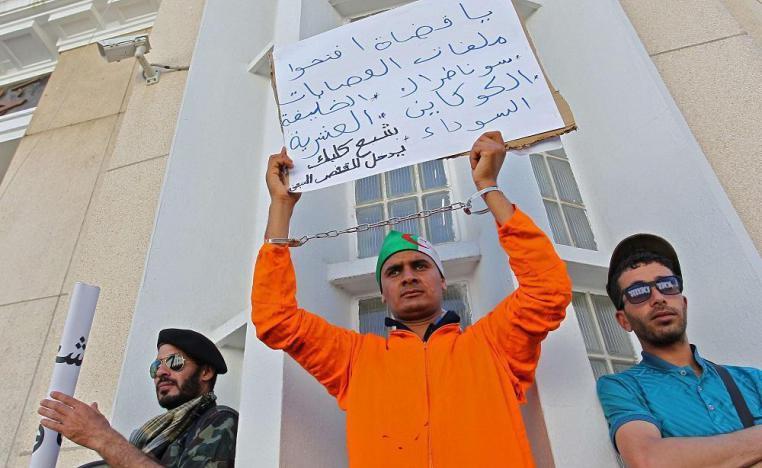 يا قضاة افتحوا
ملفات العصابات
سوناطراك الخليفة
الكوكايين العشرية
السوداء
شبع كلبك